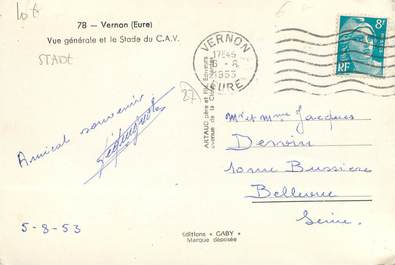 lot
78 — Vernon (Eure)
Vue générale et le Stade du C.A.V.
STADE
27
VERNON
17H45
6-8
1953
EURE
8F
RF
ARTAUD père et fils, Editeurs
avenue de la
Amical souvenir
5-8-53
Mr et Mme Jacques
Derrin
10 rue Bussière
Bellevue
Seine.
Editions « GABY »
Marque déposée